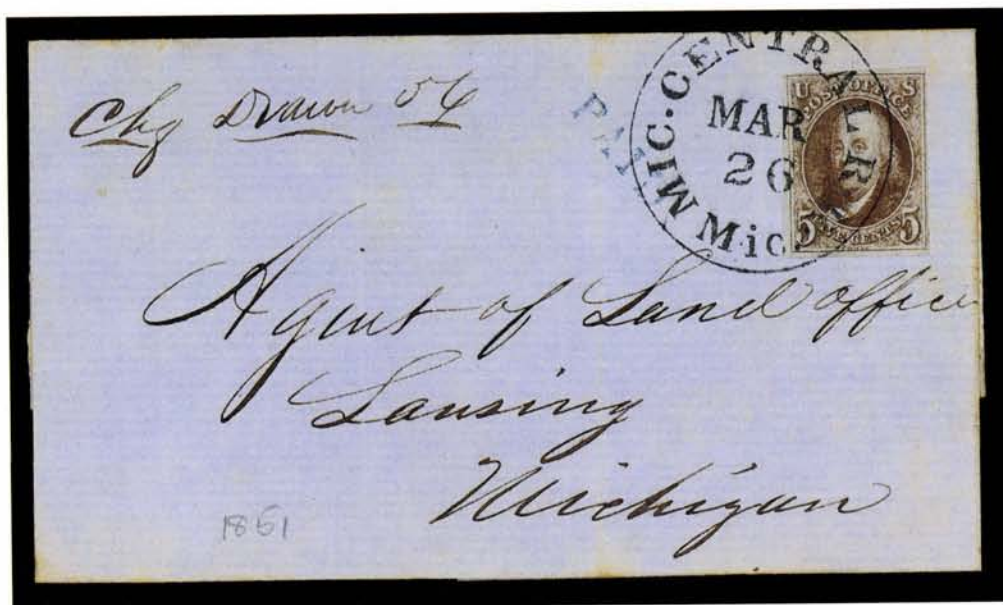 Chg Drawn
PAI
MIC. CENTRAL R.
MAR
26
Mic.
U S
POST OFFICE
5 FIVE CENTS 5
Agent of Land office
Lansing
Michigan
1851